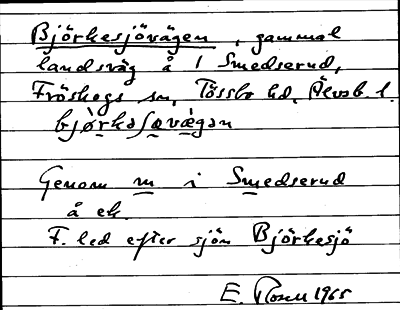 Björkesjövägen, gammal
landsväg å 1 Smedserud,
Fröskogs sn, Tössbo hd, Älvsb. l.
bjò̱rkaʃøvæ̀gan
Genom m i Smedserud
å ek.
F. led efter sjön Björkesjö
E. Rosell 1965